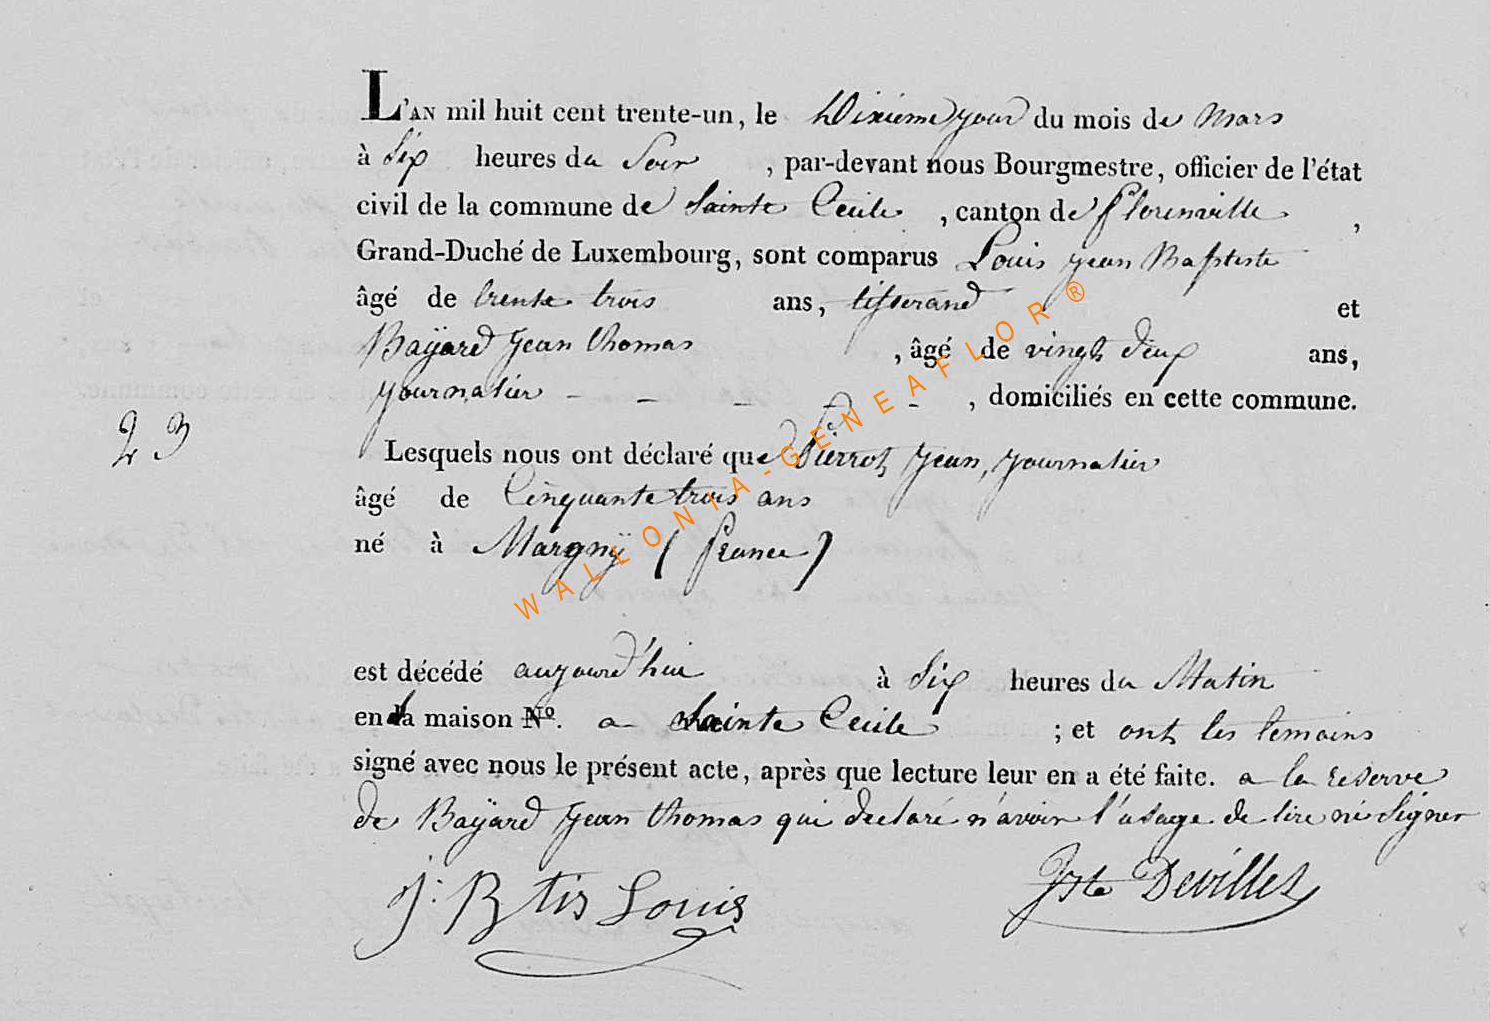 L'AN mil huit cent trente-un, le Dixieme jour du mois de Mars
à Six heures du Soir, par-devant nous Bourgmestre, officier de l'état
civil de la commune de Sainte Cecile, canton de Florenville,
Grand-Duché de Luxembourg, sont comparus Louis Jean Baptiste
âgé de trente trois ans, tisserand et
Baÿard Jean thomas, âgé de vingt deux ans,
Journalier - - - - -, domiciliés en cette commune.
23
Lesquels nous ont déclaré que Pierrot Jean, Journalier
âgé de Cinquante trois ans
né à Margnÿ (france)
est décédé aujourd'hui à Six heures du Matin
en la maison Nº. a Sainte Cecile; et ont les temoins
signé avec nous le présent acte, après que lecture leur en a été faite. a la reserve
de Baÿard Jean thomas qui declaré n'avoir l'usage de lire ni Signer
J: B tis Louis
Devillet
WALLONIA-GENEAFLOR®